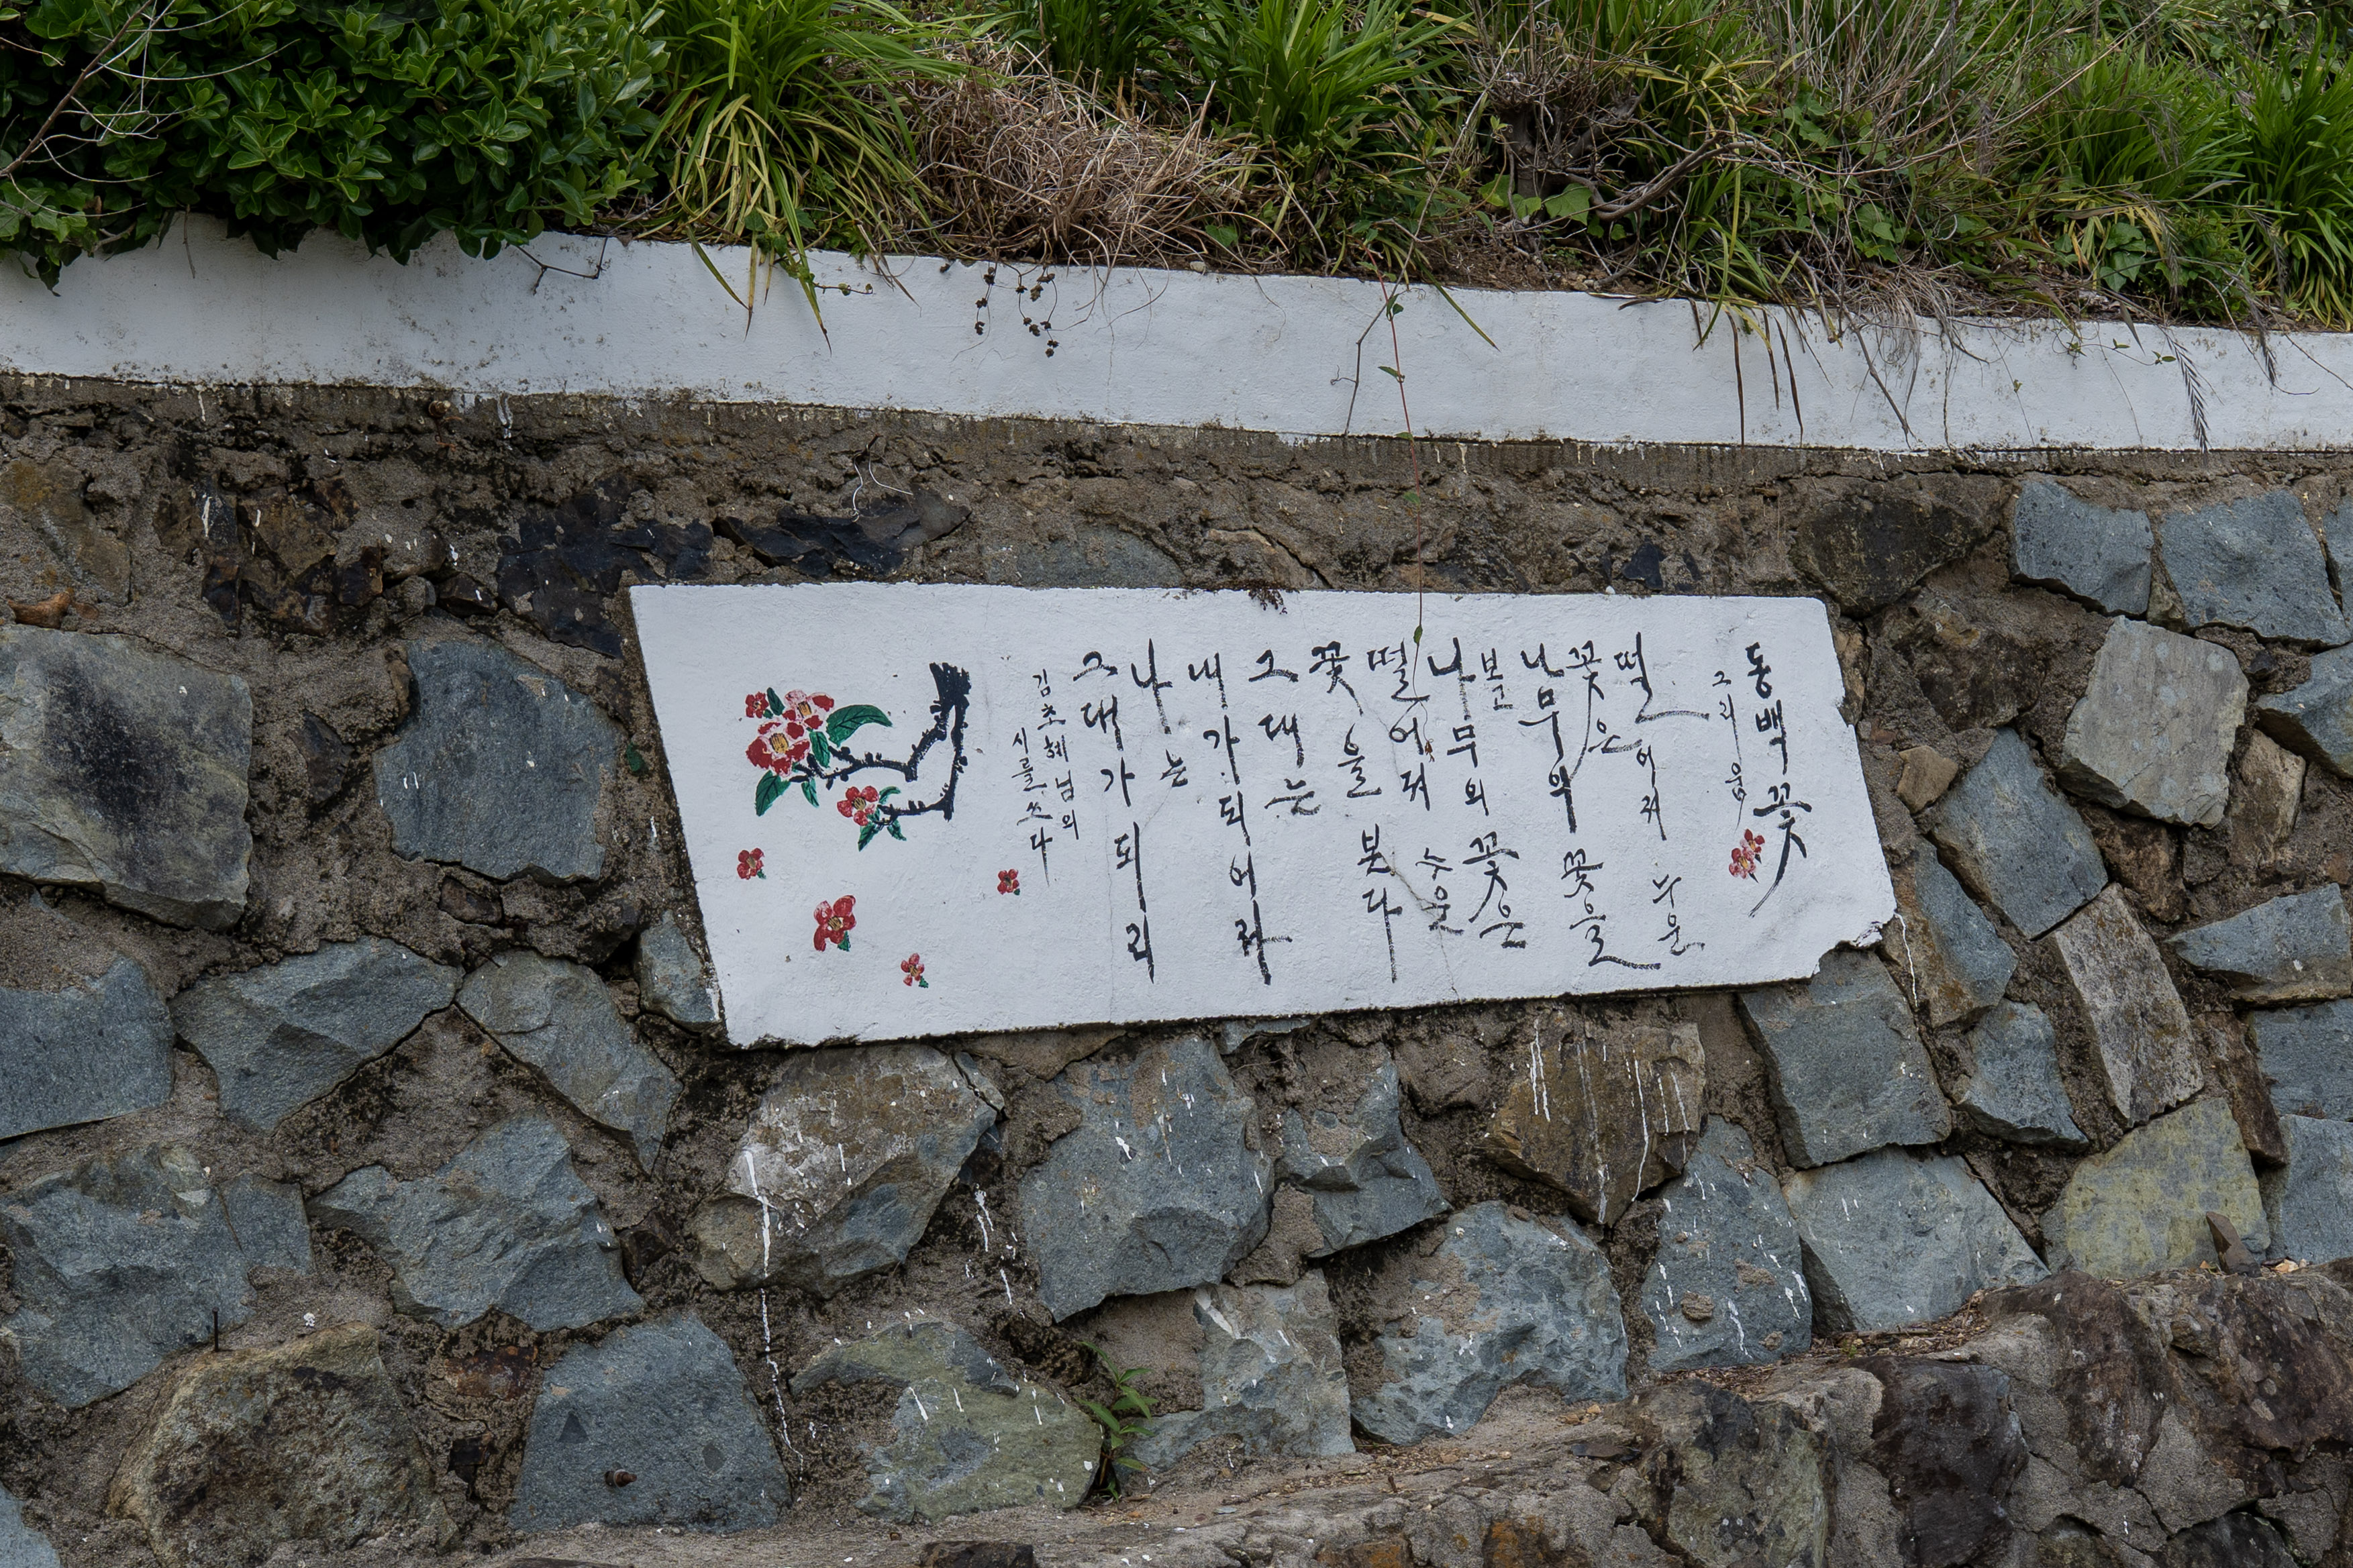 동백꽃
그리움
떨어져 누운
꽃은
나무의 꽃을
보고
나무의 꽃은
떨어져 누운
꽃을 본다
그대는
내가 되어라
나는
그대가 되리
김초혜님의
시를 쓰다